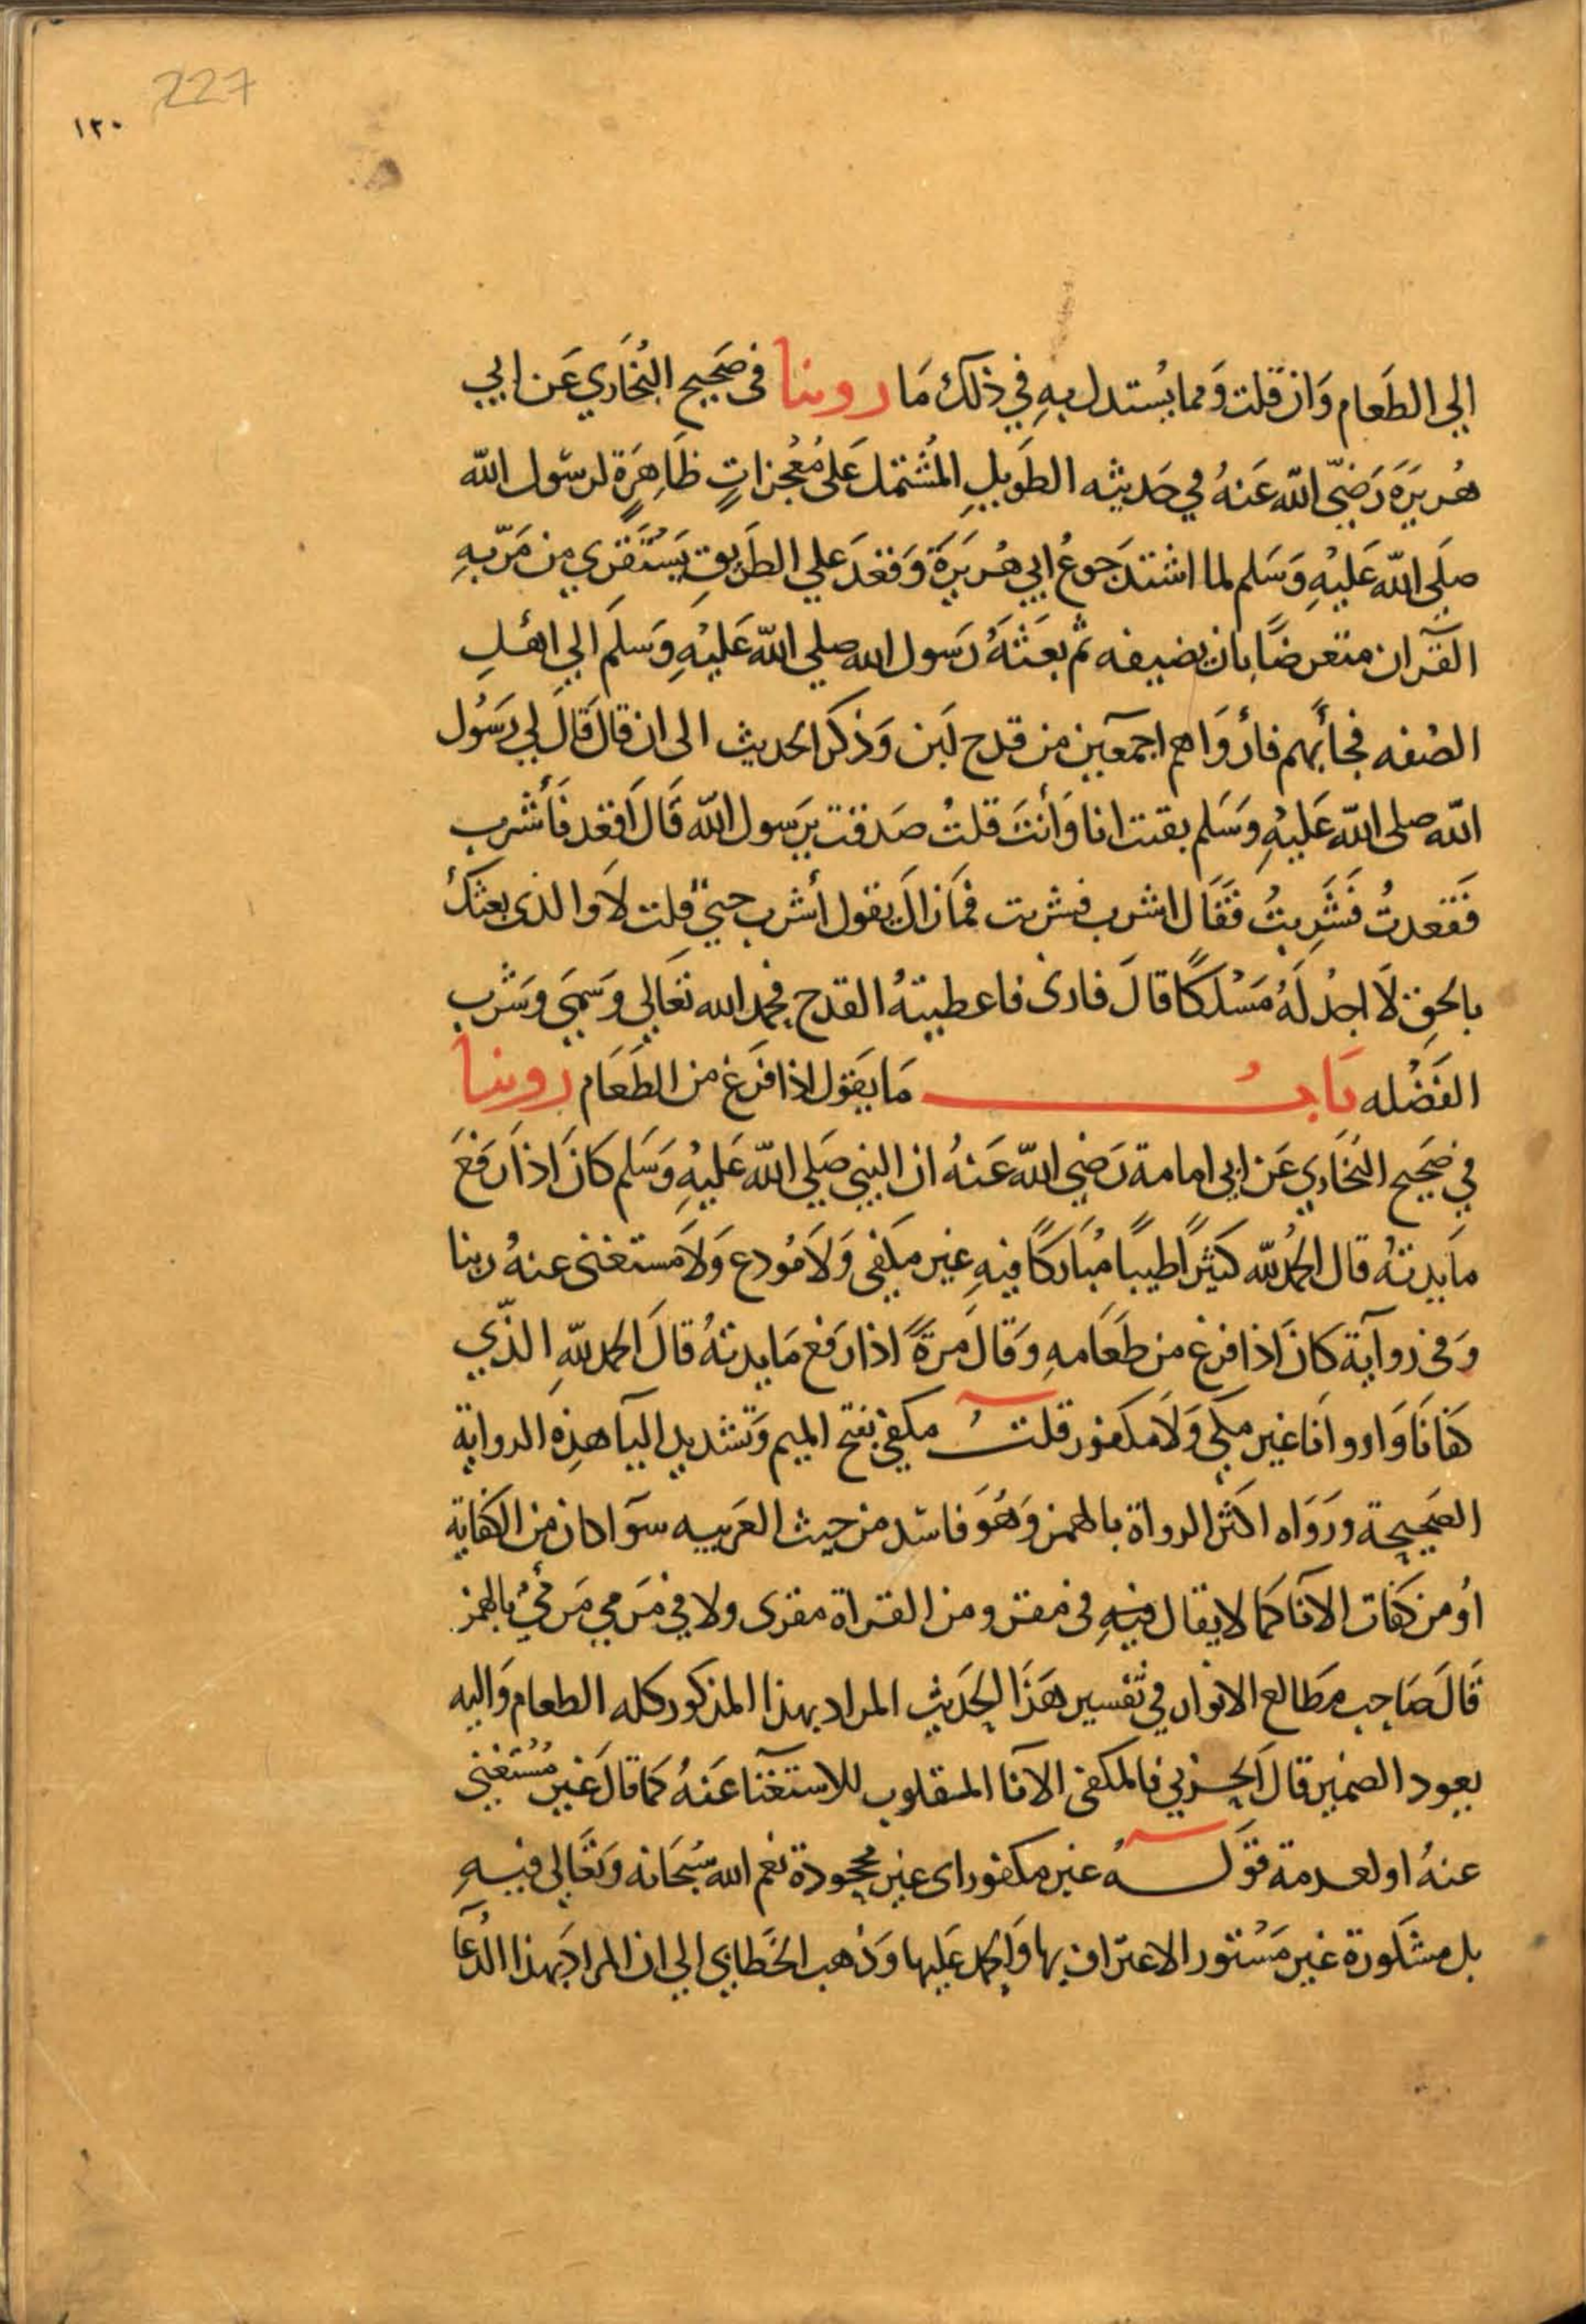 227
١٢٠
الى الطَعام وَان قلت وَمما يُستدل بهِ في ذلكَ مَا روينا فى صَحيح البُخَاري عَن ابي
هُريَرَة رَضيّ الله عَنهُ في حَديثه الطوَيلِ المُشتمل عَلى مُعْجزاتٍ ظَاهِرَةٍ لرسُول الله
صلَى الله عَليْهِ وَسَلم لما اشتدَ جوعُ ابي هُريَرَة وَقعَدَ علي الطَريقِ يَسْتَقري من مَرّبهِ
القرآن متعرضًا بان يضيفه ثم بعَثهُ رَسول الله صلي الله عَليْهِ وَسَلم الي اهلِ
الصُفه فجأبهم فأروَاهم اجمعَين من قدح لَبن وَذكر الحديث الى ان قال قَالَ لي رَسُول
الله صلى الله عَليْهِ وَسَلم بقيت انا وَأنتَ قلتُ صَدقت يرَسول الله قَالَ اقعد فَأشرب
فَقعدتُ فَشَرِبتُ فَقَال اشرب فشربت فمَازالَ يقول أشرب حتيّ قلت لاَ والذى بعثكَ
بالحقِ لاَ اجدُ لَهُ مَسْلكًا قالَ فارنى فاعطيتهُ القدح فحمد الله تعَالي وَسَمّي وشَرب
الفَضْله بَابُ مَا يقول اذا فرَغ من الطَعَام روينا
في صَحيح البخَاري عَن ابي امامة رَضي الله عَنهُ ان النبي صَلي الله عَليْهِ وَسَلم كانَ اذا رَفعَ
مَايدتهُ قال الحمُدلله كثيرًا طيبًا مبَاركًا فيهِ غير مكفي وَلاَ مُودع وَلاَ مستغنى عنهُ ربنا
وَفي روَاية كان اذا فرغ من طعَامهِ وَقالَ مرةً اذا رَفع مَايدتهُ قالَ الحمدللهِ الذّي
كفَانَا وَاروانَا غير مكفي وَلاَ مكفور قلتُ مكفي بفتح الميم وَتشديد اليآ هذِه الرواية
الصَحيحة وَرَوَاه اكثر الرواة بالهمز وَهُوَ فاسد من حيث العَربيه سوآ كان من الكفاية
اوُ من كفات الانآ كما لا يقال فيهِ في مقر و من القراة مقرى ولا في مَرمي مَرمئُ بالهمز
قَالَ صَاحب مطَالع الانوار في تفسير هَذا الحَديث المراد بهذا المذكور كله الطعام وَاليه
يعود الضمير قالَ الحَربي فالمكفى الانآ المقلوب للاستغنآ عَنهُ كمَا قال غَير مُسْتغني
عنهُ او لعدمة قوَلهُ غير مكفور اى غير محجودة نعم الله سُبحَانه وَتعَالي فيهِ
بل مشكورة غير مَسْتور الاعتراف بها وَالحمد عَليها وَذهب الخَطابي الي ان المرادَ بهذا الدُعآ